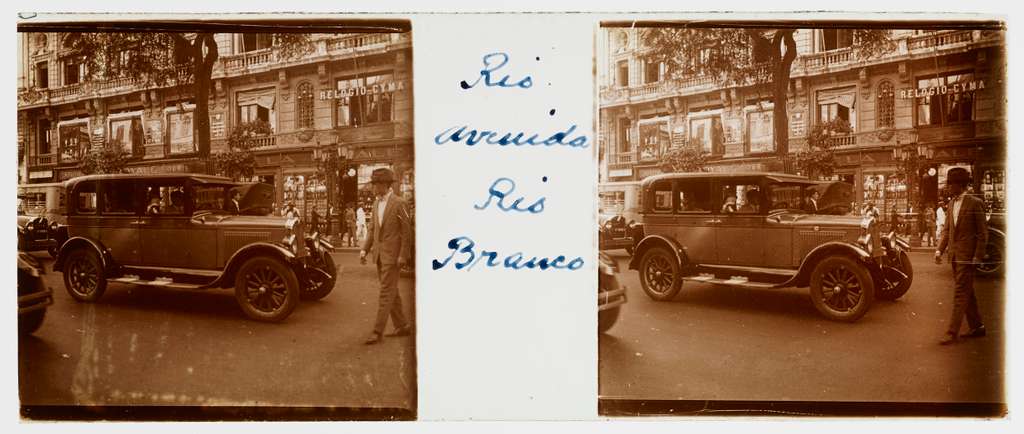 RELOGIO-CYMA
Rio
avenida
Rio
Branco
RELOGIO-CYMA